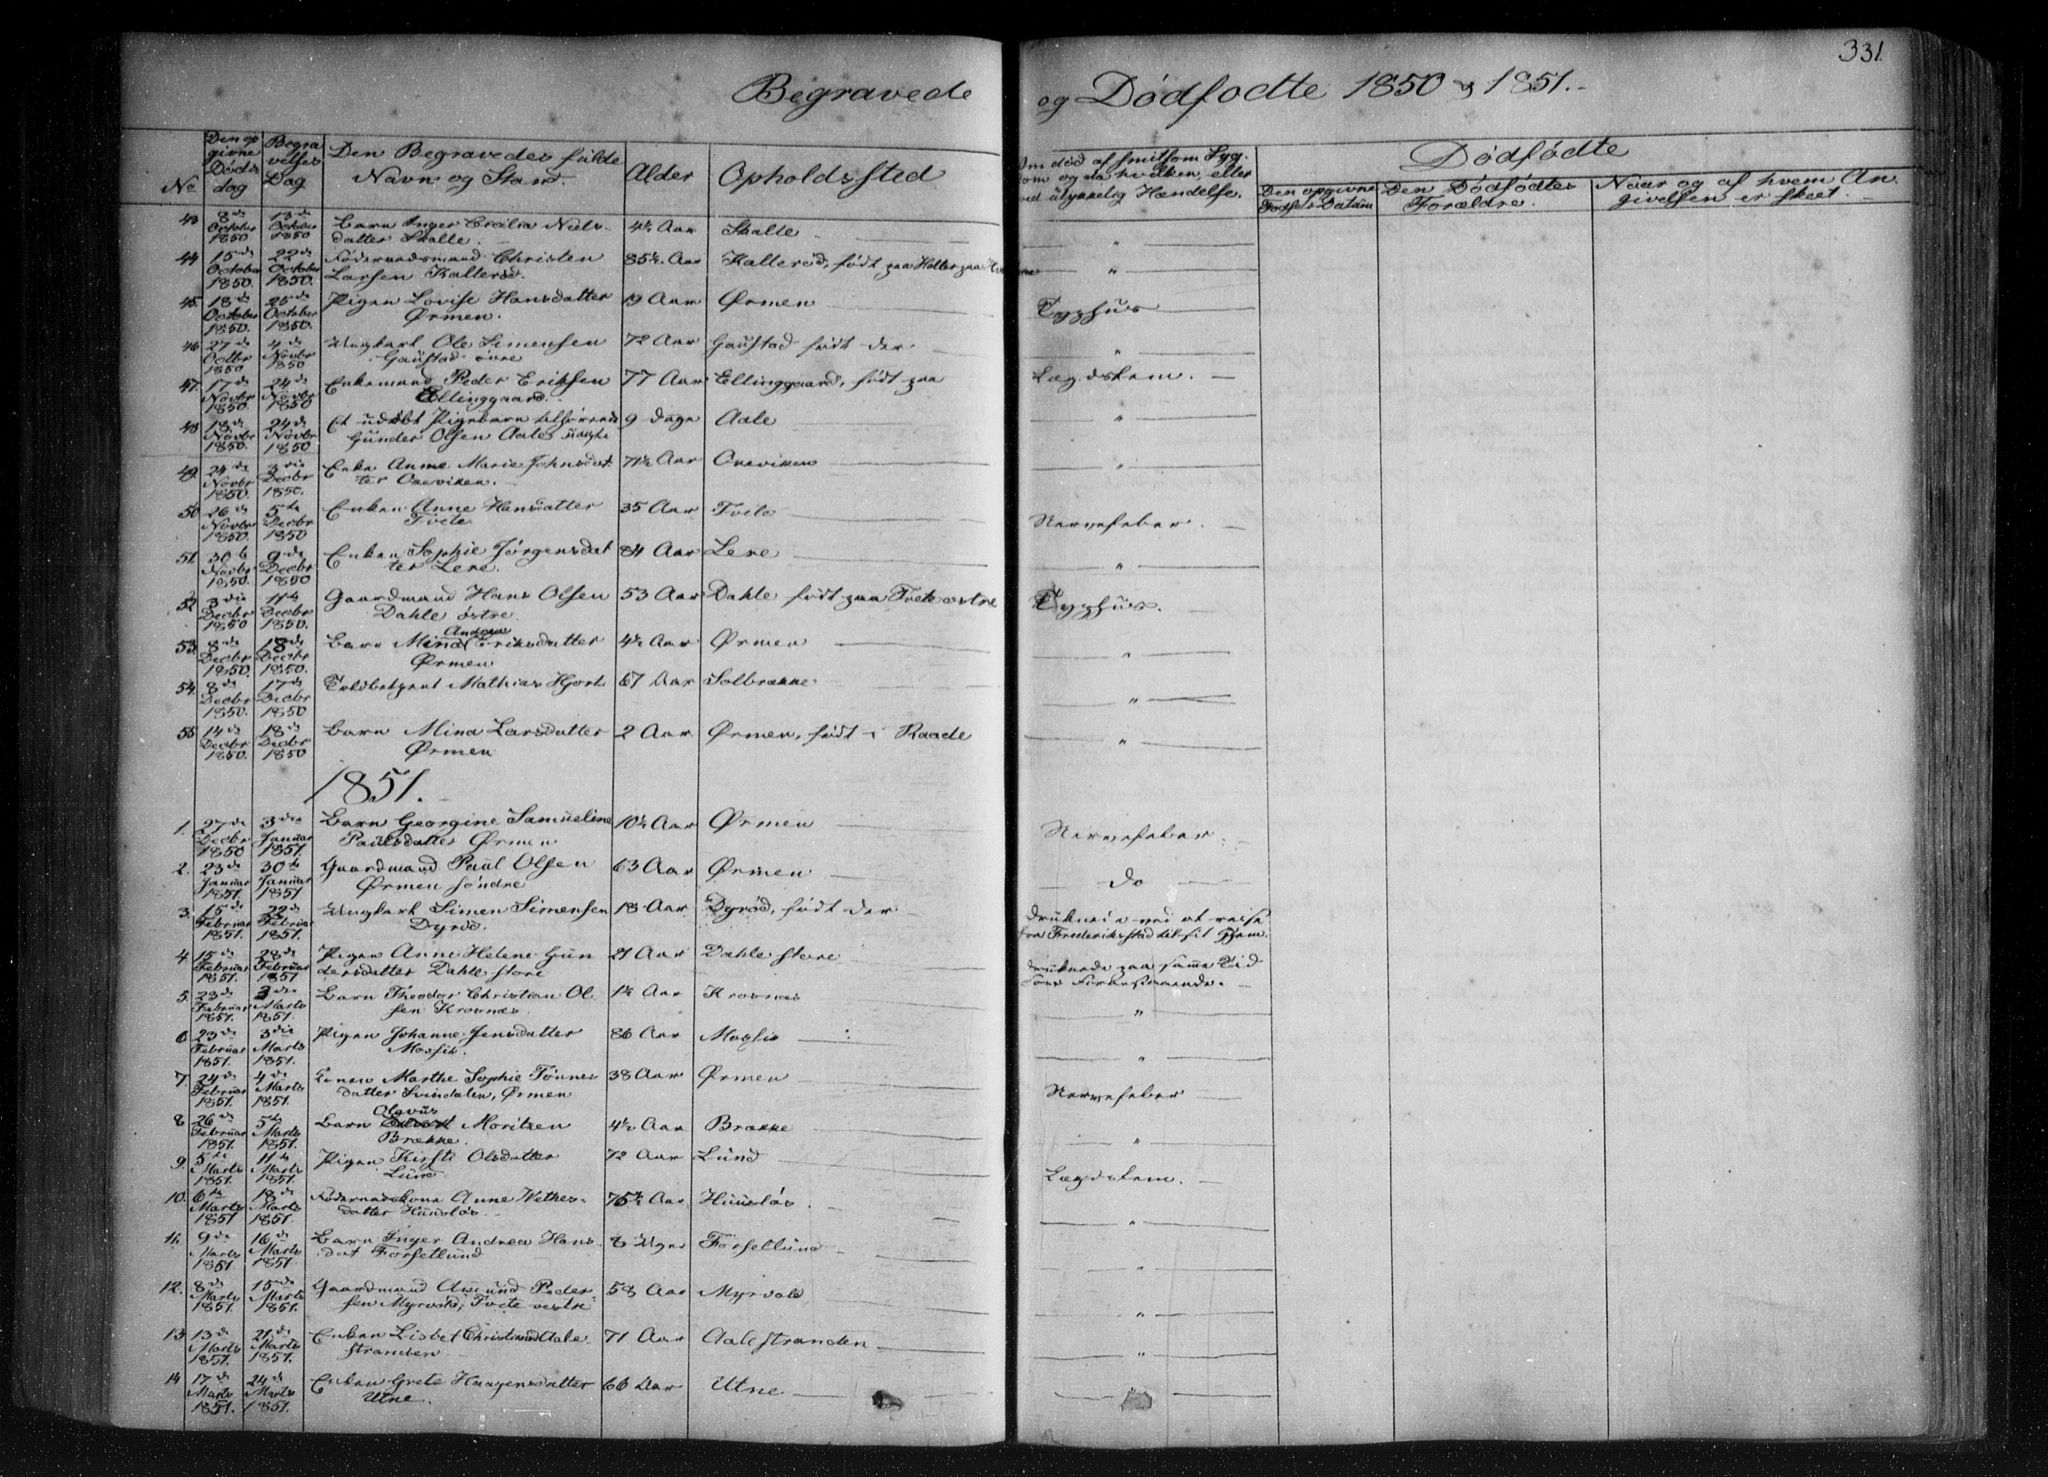 331
Begravede og Dødfødte 1850 & 1851.
No
Den op
givne
Døds
dag
Begra
velses
Dag
Den Begravedes fulde
Navn og Stand.
Alder
Opholdssted
Om død af smitsom Syg-
dom og da hvilken, eller
ved ulykkelig Hændelse.
Dødfødte
Den opgivne
Fødsels Datum
Den Dødfødtes
Forældre.
Naar og af hvem An
givelsen er skeet.
43 8de October 1850 13de October 1850 Barn Inger Cecilia Niels-
datter Skalle. 4½ Aar Skalle "
44 15de October 1850. 22de October 1850. Føderaadsmand Christen
Larsen Kallerød. 85½ Aar Kallerød, født paa Holler paa "
45. 18de October 1850. 25de October 1850. Pigen Lovise Hansdatter
Ørmen. 19 Aar Ørmen Typhus
46 27de Octbr 1850 4de Novbr 1850 Ungkarl Ole Simensen
Gaustad øvre 72 Aar Gaustad født der "
47. 17de Novbr 1850. 24de Novbr 1850 Enkemand Peder Eriksen
Ellinggaard. 77 Aar Ellinggaard, født paa Lægdslem.
48 18de Novbr 1850. 24de Novbr 1850 Et udøbt Pigebarn tilhørende
Gunder Olsen Aale 9 Dage Aale "
49. 24de Novbr 1850. 3die Decbr 1850. Enke Anne Marie Johnsdat
ter Oneviken. 71½ Aar Oneviken "
50 26de Novbr 1850. 5te Decbr 1850 Enken Anne Hansdatter
Tvete 35 Aar Tvete Nervefeber.
51. 30te Novbr 1850. 9de Decbr 1850 Enken Sophie Jørgensdat
ter Lere. 84 Aar Lere "
52 3die Decbr 1850 11te Decbr 1850. Gaardmand Hans Olsen
Dahle østre. 53 Aar Dahle født paa Tvete østre Typhus.
53. 8de Decbr 1850. 18de Decbr 1850. Barn Mina Andrea Eriksdatter
Ørmen 4½ Aar Ørmen "
54. 8de Decbr 1850. 17de Decbr 1850 Toldbetjent Mathias Hjort 67 Aar Solbrække "
55 14de Decbr 1850. 18de Decbr 1850 Barn Mina Larsdatter
Ørmen 2 Aar Ørmen, født i Raade "
1851.
1. 27de Decbr 1850 3die Januar 1851. Barn Georgine Samueline
Paulsdatter Ørmen 10½ Aar Ørmen Nervefeber.
2. 23de Januar 1851. 30te Januar 1851 Gaardmand Paul Olsen
Ørmen søndre 63 Aar Ørmen do
3. 15de Februar 1851. 22de Februar 1851. Ungkarl Simen Simensen
Dyrød. 18 Aar Dyrød, født der druknede ved at reise
fra Frederikstad til sit Hjem.
4. 15de Februar 1851. 28de Februar 1851 Pigen Anne Helene Gun
dersdatter Dahle store 21 Aar Dahle store druknede paa samme Tid
som Forestaaende.
5. 23de Februar 1851. 3die Marts 1851. Barn Theodor Christian Ol
sen Krosnes. 1½ Aar Krosnes "
6. 23de Februar 1851. 3die Marts 1851. Pigen Johanne Jensdatter
Mossik. 86 Aar Mossik "
7. 24de Februar 1851. 4de Marts 1851. Konen Marthe Sophie Tønnes
datter Svindalen, Ørmen 38 Aar Ørmen Nervefeber
8 26de Februar 1851. 5te Marts 1851. Barn Olavus Moritzen
Brække. 4½ Aar Brække "
9. 5te Marts 1851. 11te Marts 1851. Pigen Kirsti Olsdatter
Lund 72 Aar Lund Lægdslem.
10. 6te Marts 1851 18de Marts 1851. Føderaadskone Anne Wethes-
datter Huusløs. 75½ Aar Huusløs "
11. 9de Marts 1851 16de Marts 1851. Barn Inger Andrea Hans-
dat Forsetlund 8 Uger Forsetlund "
12. 8de Marts 1851. 15de Marts 1851. Gaardmand Amund Peder
sen Myrvold, Tvete vestre 58 Aar Myrvold "
13 13de Marts 1851. 21de Marts 1851. Enken Lisbet Christiansd Aale
stranden 71 Aar Aalestranden "
14 17de Marts 1851. 24de Marts 1851. Enken Grete Haagensdatter
Utne. 66 Aar Utne "